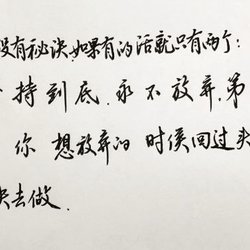 没有秘诀,如果有的话就只有两个:
持到底,永不放弃,第
你想放弃的时侯回过头
去做.